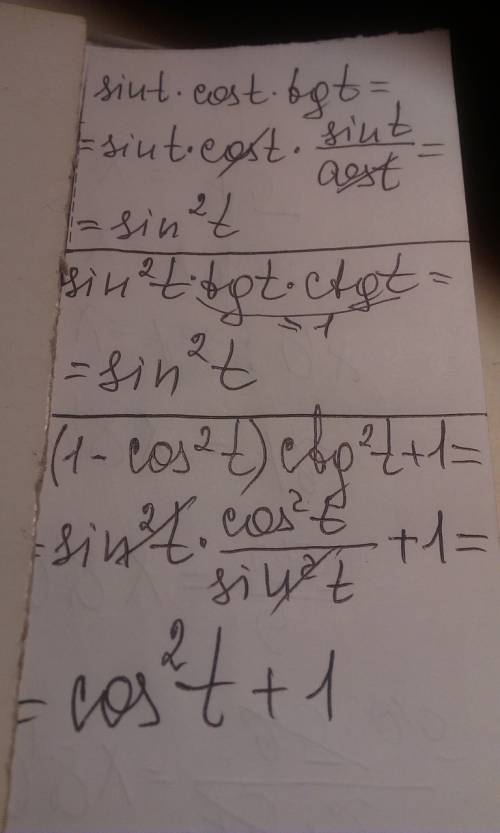 sint · cost · tgt =
= sint · cost · sint/cost =
= sin²t
sin²t · tgt · ctgt =
= 1
= sin²t
(1 - cos²t) ctg²t + 1 =
= sin²t · cos²t/sin²t + 1 =
= cos²t + 1